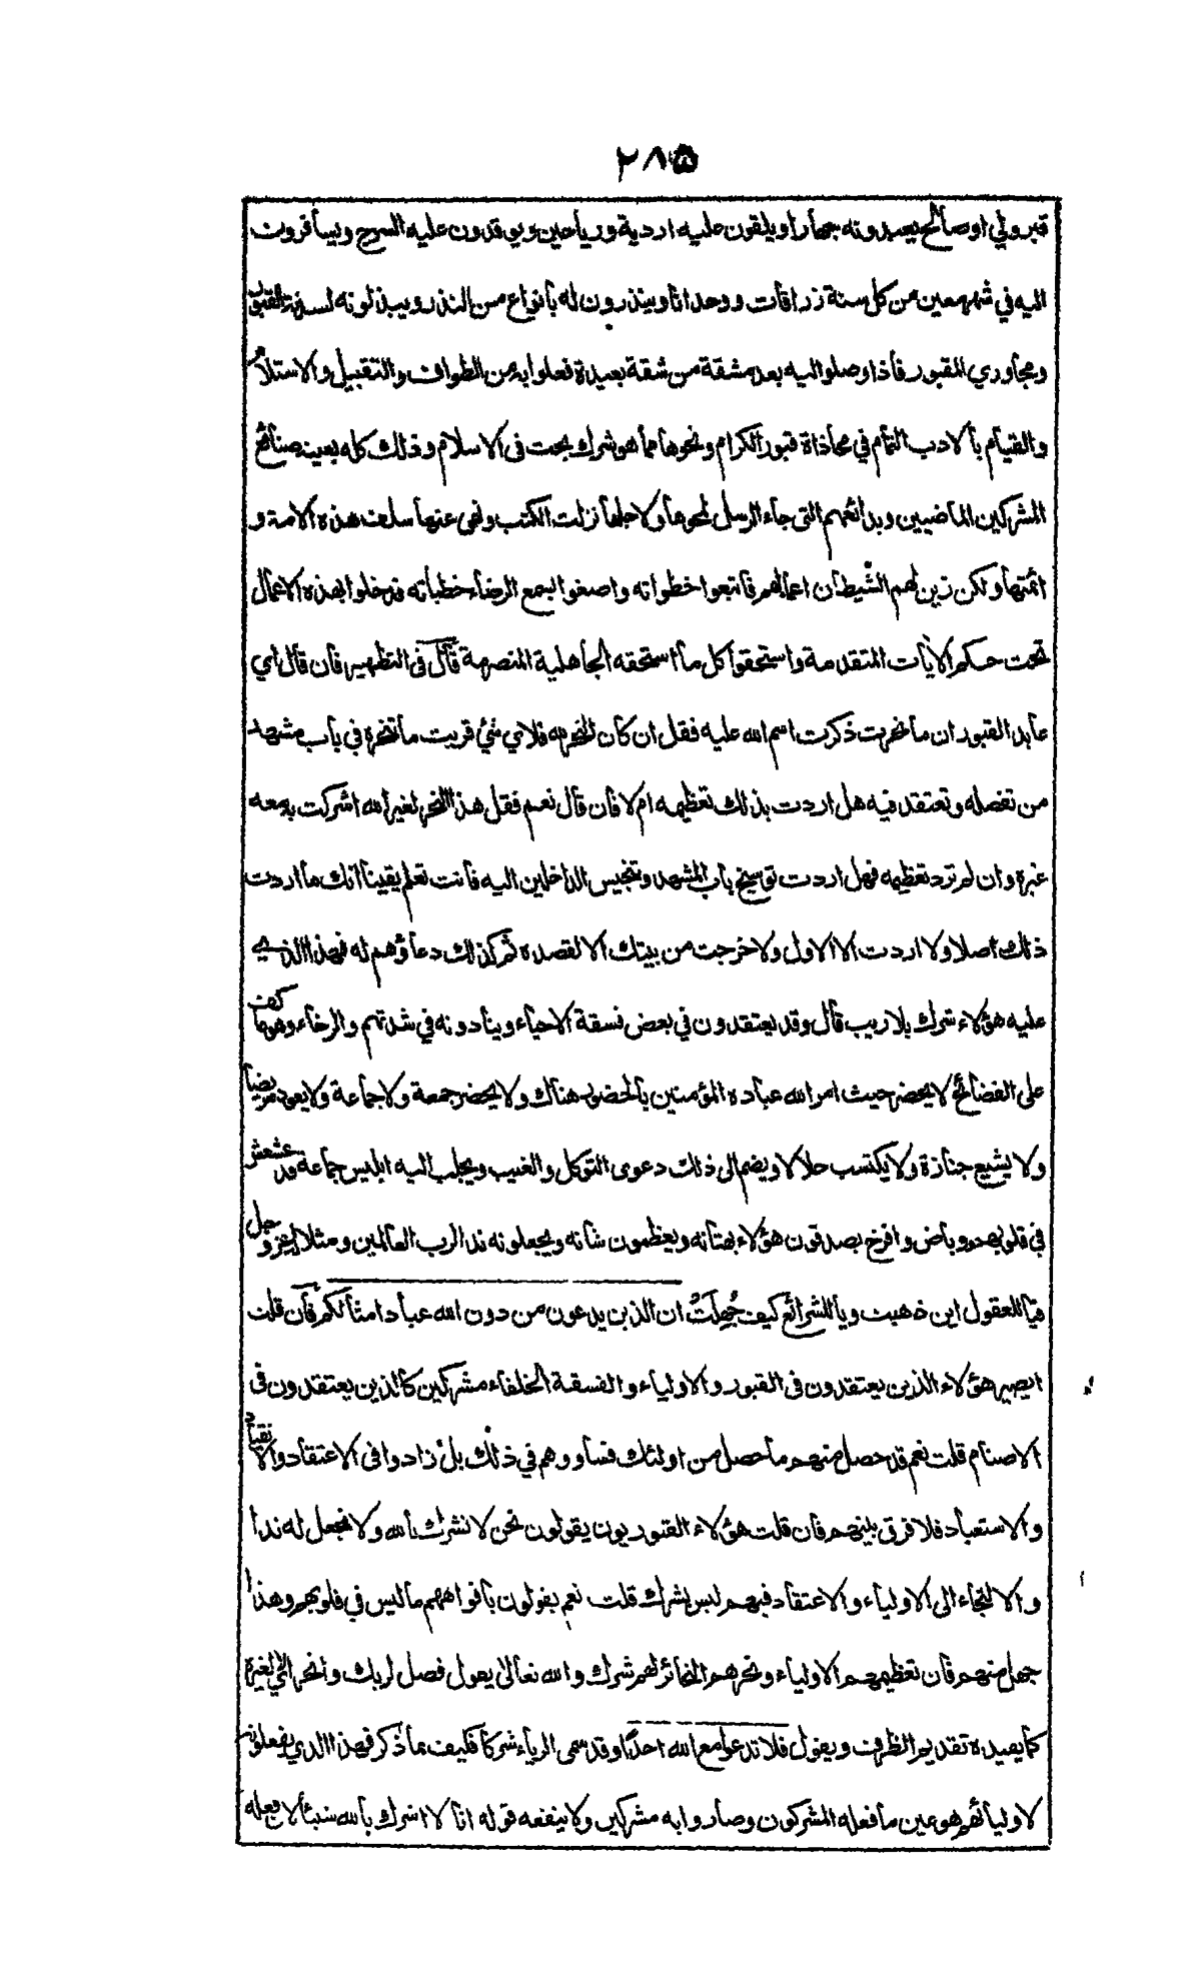 ٢٨٥
قبر ولي او صالح يعبدونه جهارا ويلقون عليه اردية ورياحين ويوقدون عليه السرج ويسافرون
اليه في شهر معين من كل سنة زرافات ووحدانا وينذرون له بأنواع من النذر ويبذلونه لسدنة القبور
ومجاوري المقبور فأذا وصلوا اليه بعد مشقة من شقة بعيدة فعلوا به من الطواف والتقبيل والاستلام
والقيام بألادب التام في محاذاة قبور الكرام ونحوها مما هو شرك بحت فى الاسلام وذلك كله بعينه صنائع
المشركين الماضيين وبدائعهم التى جاء الرسل لمحوها ولاجلها نزلت الكتب ونهى عنها سلف هذه الامة و
ائمتها ولكن زين لهم الشيطان اعمالهم فاتبعوا خطواته واصغوا بسمع الرضاء خطباته فدخلوا بهذه الاعمال
تحت حكم الأيات المتقدمة واستحقوا كل ما استحقه الجاهلية المنصرمة قال فى التطهير فان قال اي
عابد القبور ان ما نحرت ذكرت اسم الله عليه فقل ان كان النحر لله فلاي شئ قربت ما تنحره في باب مشهد
من تفضله وتعتقد فيه هل اردت بذلك تعظيمه ام لا فان قال نعم فقل هذا النحر لغير الله اشركت به معه
غيره وان لم ترد تعظيمه فهل اردت توسيخ باب المشهد وتنجيس الداخلين اليه فأنت تعلم يقينا انك ما اردت
ذلك اصلا ولا اردت الا الاول ولا خرجت من بيتك الا لقصده ثم كذلك دعاؤهم له فهذا الذي
عليه هؤلاء شرك بلا ريب قال وقد يعتقدون في بعض فسقة الاحياء وينادونه في شدتهم والرخاء وهو عاكف
على الفضائح لا يحضر حيث امر الله عباده المؤمنين بالحضور هناك ولا يحضر جمعة ولا جماعة ولا يعود مريضا
ولا يشيع جنازة ولا يكتسب حلالا ويضم الى ذلك دعوى التوكل والغيب ويجلب اليه ابليس جماعه قد عشعش
في قلوبهم وباض وافرخ يصدقون هؤلاء بهتانه ويعظمون شانه ويجعلونه ندا لرب العالمين ومثلا له عز وجل
فيا للعقول اين ذهبت ويا للشرائع كيف جُهِلَتْ ان الذين يدعون من دون الله عبادا امثالكم فأن قلت
ايصير هؤلاء الذين يعتقدون فى القبور والاولياء والفسقة الخلفاء مشركين كالذين يعتقدون فى
الاصنام قلت نعم قد حصل منهم ما حصل من اولئك فساووهم في ذلك بل زادوا فى الاعتقاد والانقياد
والاستعباد فلا فرق بينهم فأن قلت هؤلاء القبوريون يقولون نحن لا نشرك بالله ولا نجعل له ندا
والالتجاء الى الاولياء والاعتقاد فيهم ليس بشرك قلت نعم يقولون بأفواههم ما ليس في قلوبهم وهذا
جهل منهم فأن تعظيمهم الاولياء ونحرهم النحائر لهم شرك والله تعالى يقول فصل لربك وانحر اي لا لغيره
كما يفيده تقديم الظرف ويقول فلا تدعوا مع الله احدا وقد سمى الرياء شركا فكيف بما ذكر فهذا الذي يفعلونه
لاوليائهم هو عين ما فعله المشركون وصاروا به مشركين ولا ينفعه قوله انا لا اشرك بالله شيئا لان فعله